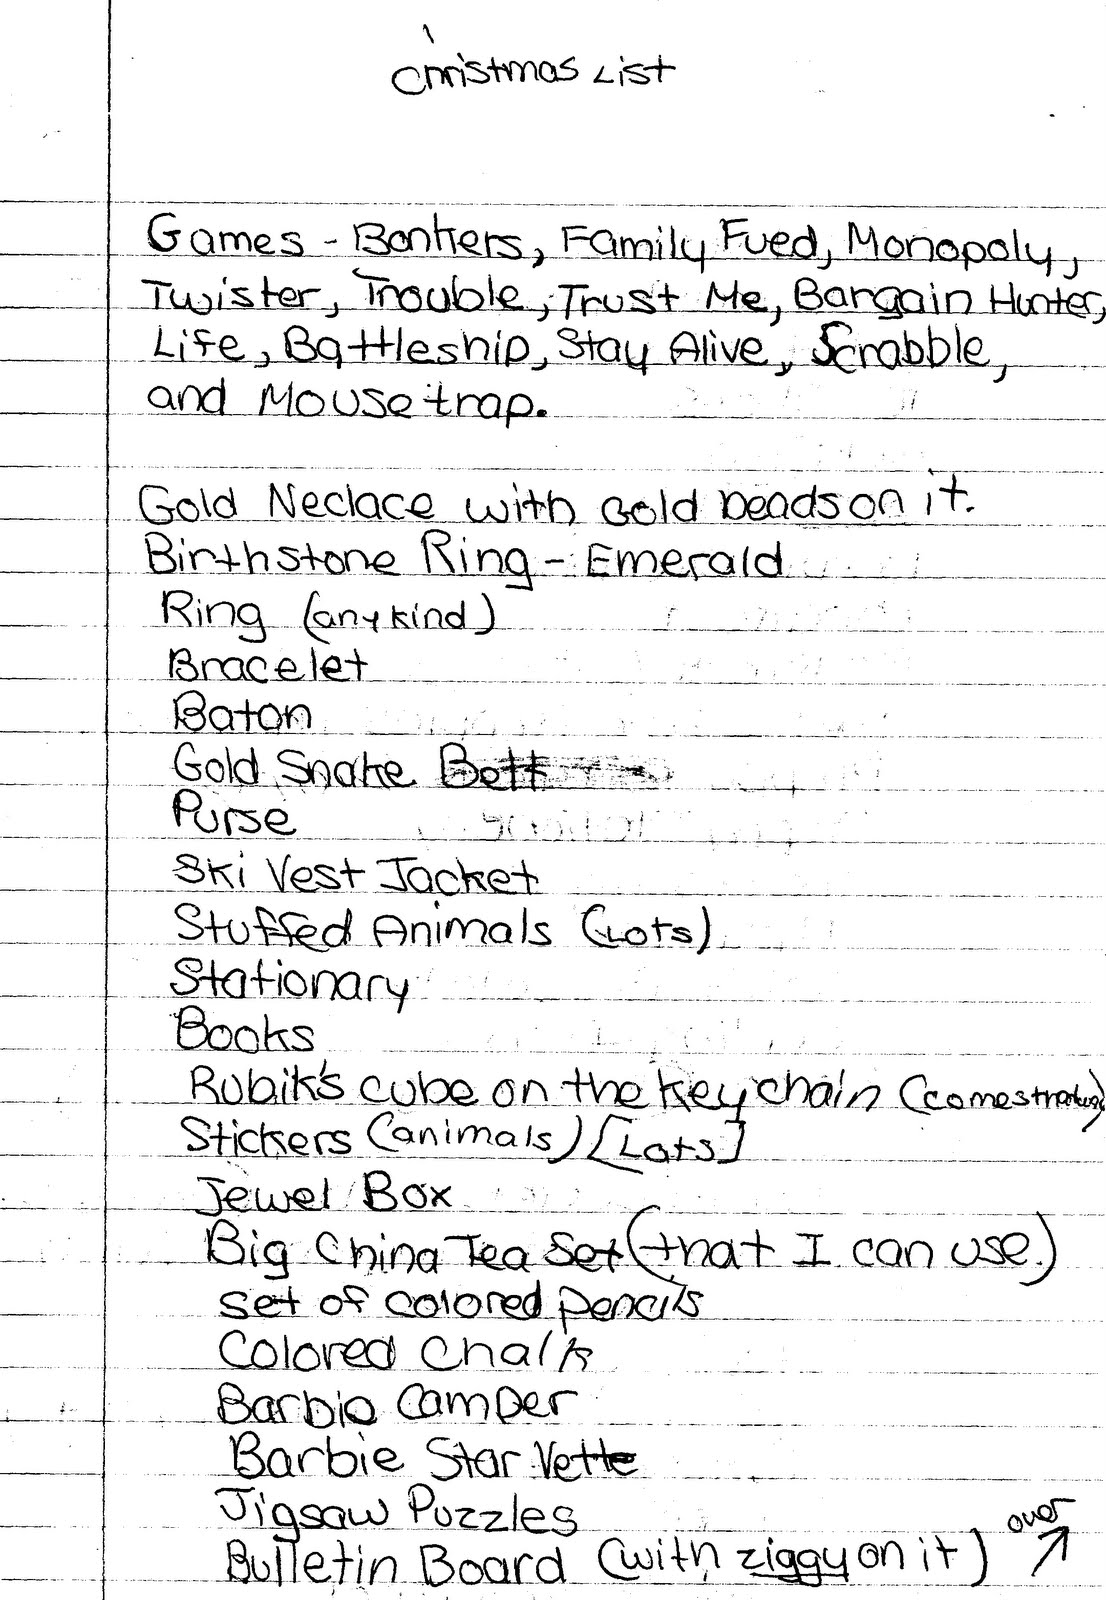 Christmas List
Games - Bonkers, Family Fued, Monopoly,
Twister, Trouble, Trust Me, Bargain Hunter,
Life, Battleship, Stay Alive, Scrabble,
and Mousetrap.
Gold Neclace with Gold beads on it.
Birthstone Ring - Emerald
Ring (any kind)
Bracelet
Baton
Gold Snake Belt
Purse
Ski Vest Jacket
Stuffed Animals (Lots)
Stationary
Books
Rubik's cube on the key chain
Stickers (animals) [Lots]
Jewel Box
Big China Tea Set (that I can use.)
set of colored pencils
Colored Chalk
Barbie Camper
Barbie Star Vette
Jigsaw Puzzles
Bulletin Board (with ziggy on it)
over